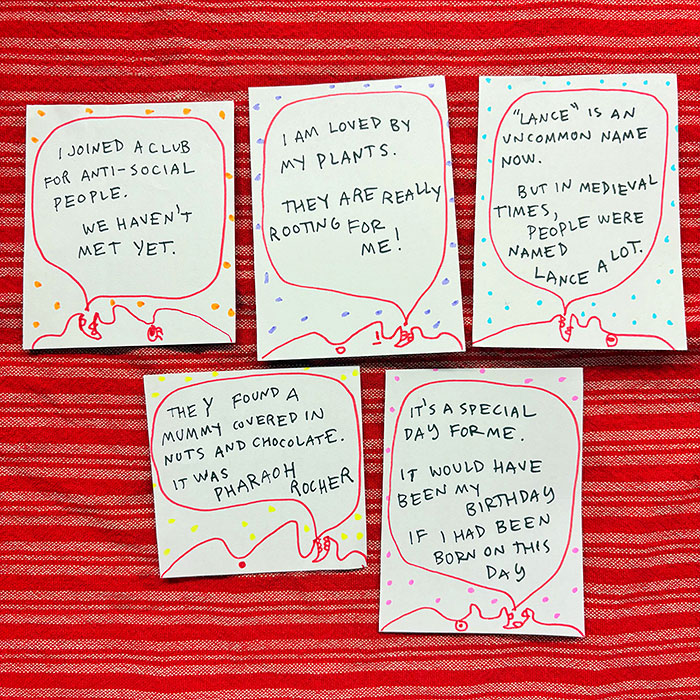 I JOINED A CLUB
FOR ANTI-SOCIAL
PEOPLE.
WE HAVEN'T
MET YET.
I AM LOVED BY
MY PLANTS.
THEY ARE REALLY
ROOTING FOR
ME!
"LANCE" IS AN
UNCOMMON NAME
NOW.
BUT IN MEDIEVAL
TIMES,
PEOPLE WERE
NAMED
LANCE A LOT.
THEY FOUND A
MUMMY COVERED IN
NUTS AND CHOCOLATE.
IT WAS
PHARAOH
ROCHER
IT'S A SPECIAL
DAY FOR ME.
IT WOULD HAVE
BEEN MY
BIRTHDAY
IF I HAD BEEN
BORN ON THIS
DAY